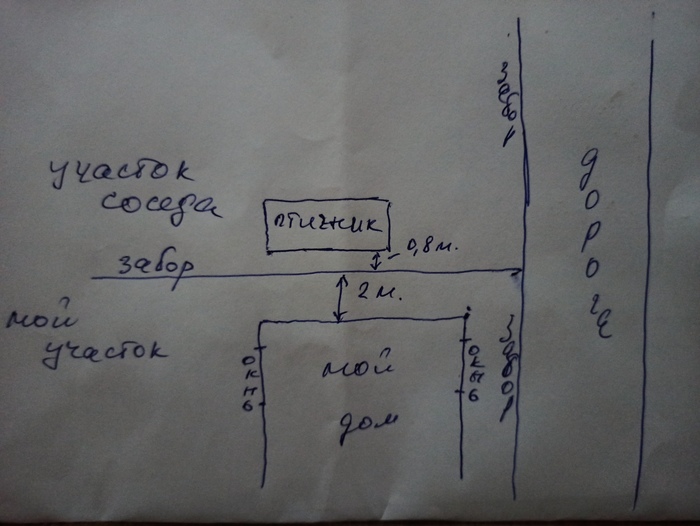 участок
соседа
птичник
0,8 м.
забор
забор
2 м.
мой
участок
окно
мой
дом
окно
забор
дорога